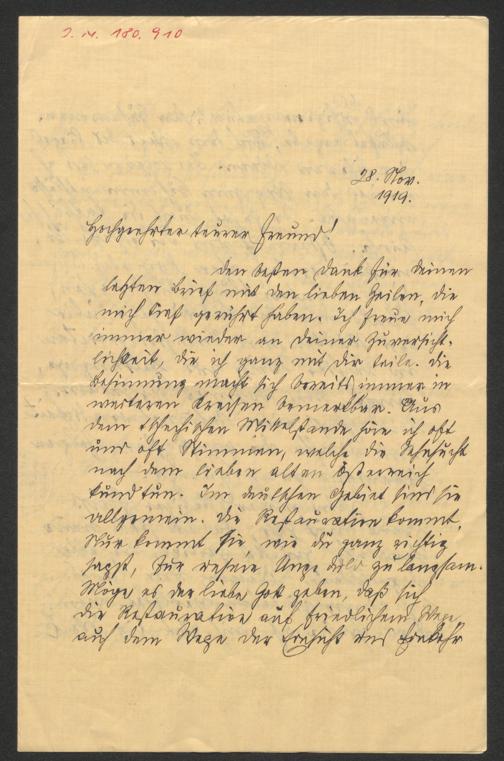 J. N. 180.910
28. Nov.
1919.
Hochgeehrter teurer Freund!
Den besten Dank für Deinen
letzten Brief mit den lieben Zeilen, die
mich tief gerührt haben. Ich freue mich
immer wieder an Deiner Zuversicht-
lichkeit, die ich ganz mit Dir teile. Die
Besinnung macht sich bereits immer in
weiteren Kreisen bemerkbar. Aus
dem tschechischen Mittelstande höre ich oft
und oft Stimmen, welche die Sehnsucht
nach dem lieben alten Österreich
kundtun. Im deutschen Gebiet sind sie
allgemein. Die Restauration kommt,
nur kommt sie, wie Du ganz richtig
sagst, für unsere Ungeduld zu langsam.
Möge es der liebe Gott geben, daß sich
die Restauration auf friedlichem Wege,
auf dem Wege der Einsicht und Einkehr